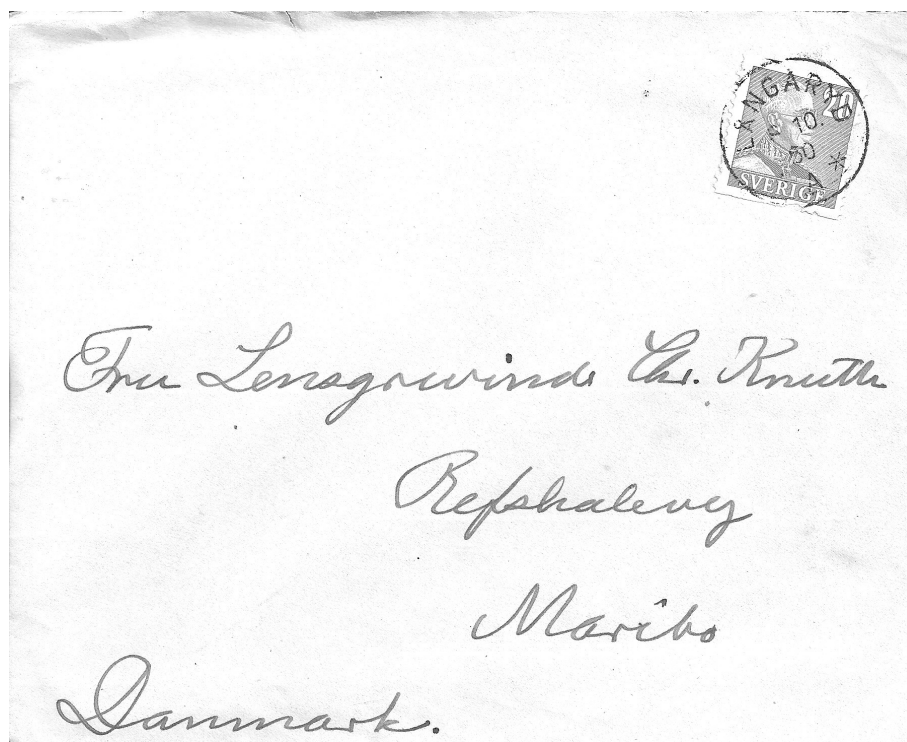 LÅNGARYD
20
10
50
SVERIGE
Fru Lensgrevinde Chr. Knuth
Refshalevej
Maribo
Danmark.